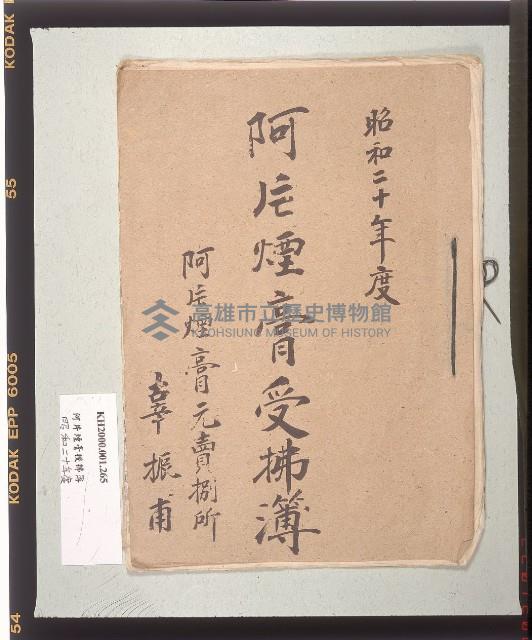 昭和二十年度
阿片煙膏受拂簿
阿片煙膏元賣捌所
辜振甫
高雄市立歷史博物館
KAOHSIUNG MUSEUM OF HISTORY
KH2000.001.265
阿片煙膏授拂簿
昭和二十年度
KODAK EPP 6005
KODAK
55
54